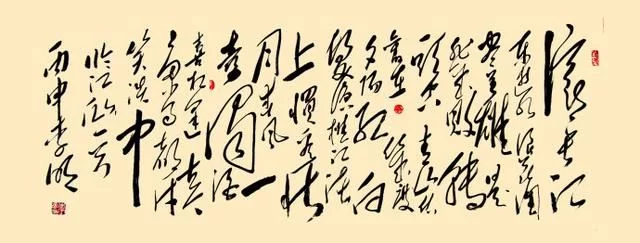 滚滚长江
东逝水浪花淘
尽英雄是
非成败转
头空青山依
旧在几度
夕阳红白
发渔樵江渚
上惯看秋
月春风一
壶浊酒
喜相逢古今
多少事都付
笑谈中
临江仙一首
丙申李明